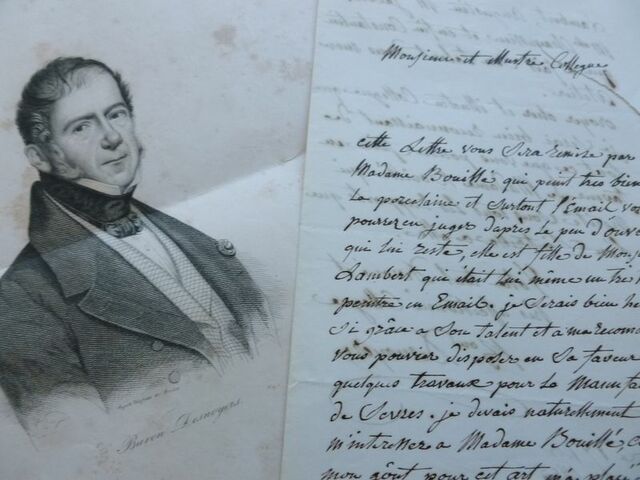 Baron Desnoyers.
Monsieur et Illustre Collegue
cette Lettre vous Sera remise par
Madame Bouillé qui peint tres bien
La porcelaine et Surtout l'Émail vo
pourrez en juger d'après le peu d'ouv
qui lui reste, elle est fille de Mons
Lambert qui était lui même un tres h
peintre en Email. je Serais bien he
Si grâce a Son talent et a ma recom
vous pouviez disposer en Sa faveur
quelques travaux pour La Manufa
de Sevres. je devais naturellement
m'interesser a Madame Bouillé,
mon goût pour cet art m'a